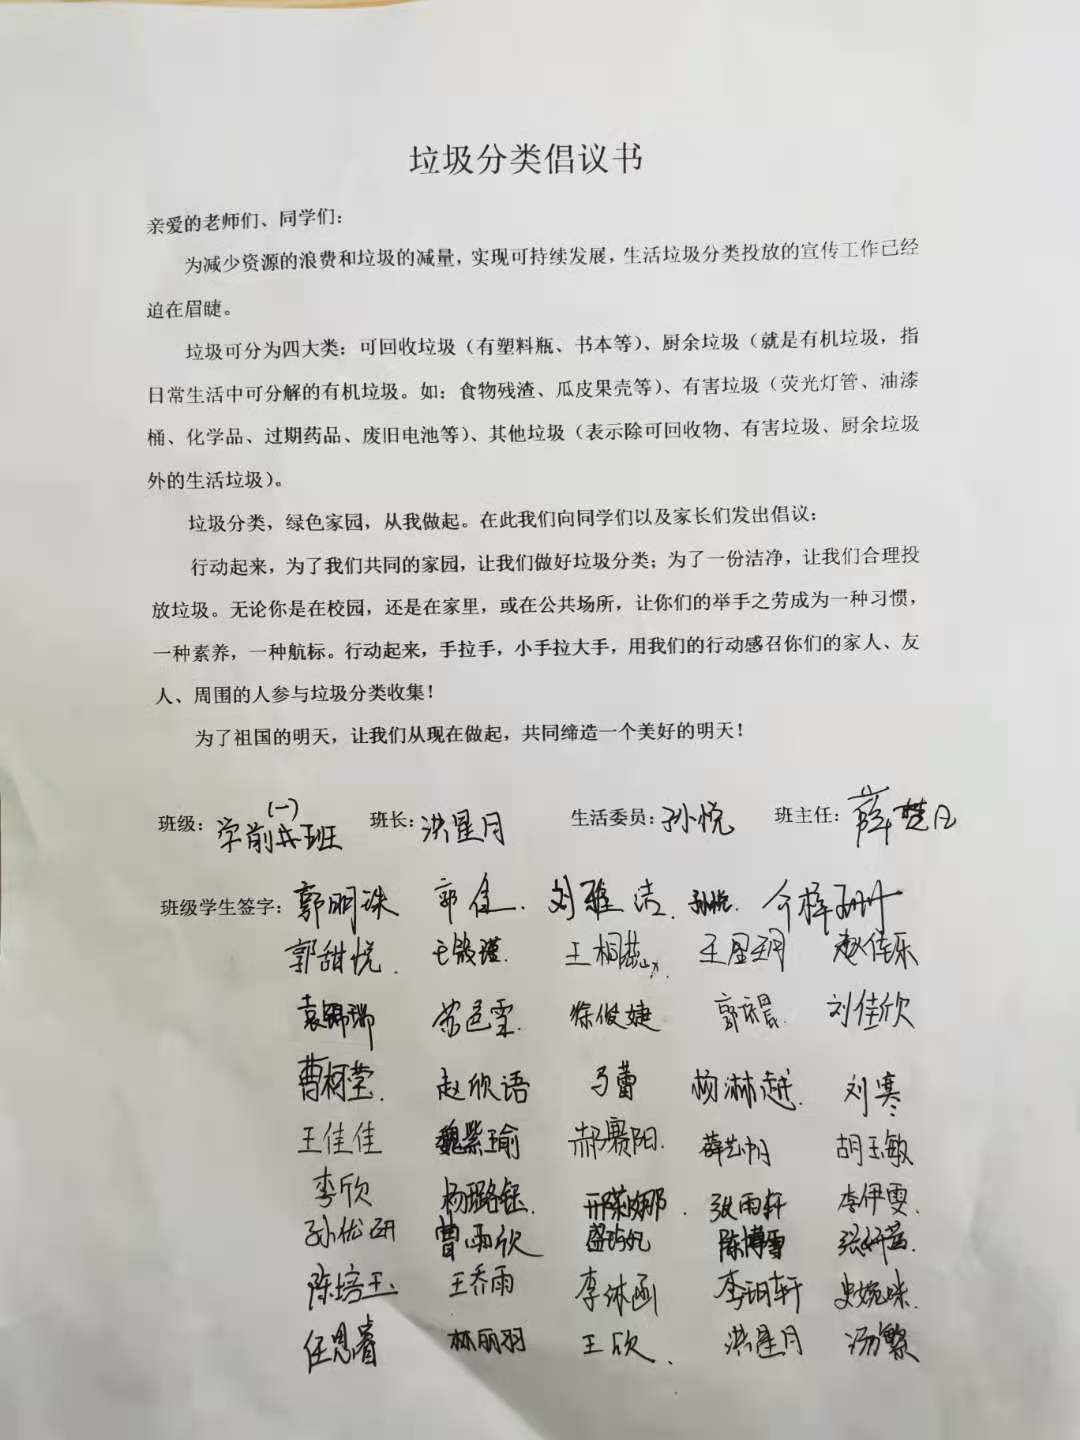 垃圾分类倡议书
亲爱的老师们、同学们：
为减少资源的浪费和垃圾的减量，实现可持续发展，生活垃圾分类投放的宣传工作已经
迫在眉睫。
垃圾可分为四大类：可回收垃圾（有塑料瓶、书本等）、厨余垃圾（就是有机垃圾，指
日常生活中可分解的有机垃圾。如：食物残渣、瓜皮果壳等）、有害垃圾（荧光灯管、油漆
桶、化学品、过期药品、废旧电池等）、其他垃圾（表示除可回收物、有害垃圾、厨余垃圾
外的生活垃圾）。
垃圾分类，绿色家园，从我做起。在此我们向同学们以及家长们发出倡议：
行动起来，为了我们共同的家园，让我们做好垃圾分类；为了一份洁净，让我们合理投
放垃圾。无论你是在校园，还是在家里，或在公共场所，让你们的举手之劳成为一种习惯，
一种素养，一种航标。行动起来，手拉手，小手拉大手，用我们的行动感召你们的家人、友
人、周围的人参与垃圾分类收集！
为了祖国的明天，让我们从现在做起，共同缔造一个美好的明天！
班级：学前(一)班 班长：洪星月 生活委员：孙悦 班主任：薛楚凡
班级学生签字：郭明珠 郭佳. 刘雅洁. 孙悦.
郭甜悦. 毛敏瑾. 王星玥 赵佳乐
袁锦瑞 徐俊婕 刘佳欣
曹柯莹. 赵欣语 马蕾 杨淋越. 刘寒
王佳佳 魏紫瑜 郝赛阳. 薛艺帆 胡玉敏
李欣 杨璐钰. 邢荣娜. 张雨轩 李伊雯.
孙优研 曹雨欣 陈博雪 张妍茜.
陈培玉 王乔雨 李沐函 李玥轩 史婉咪.
任思睿 林丽羽 王欣. 洪星月 汤繁